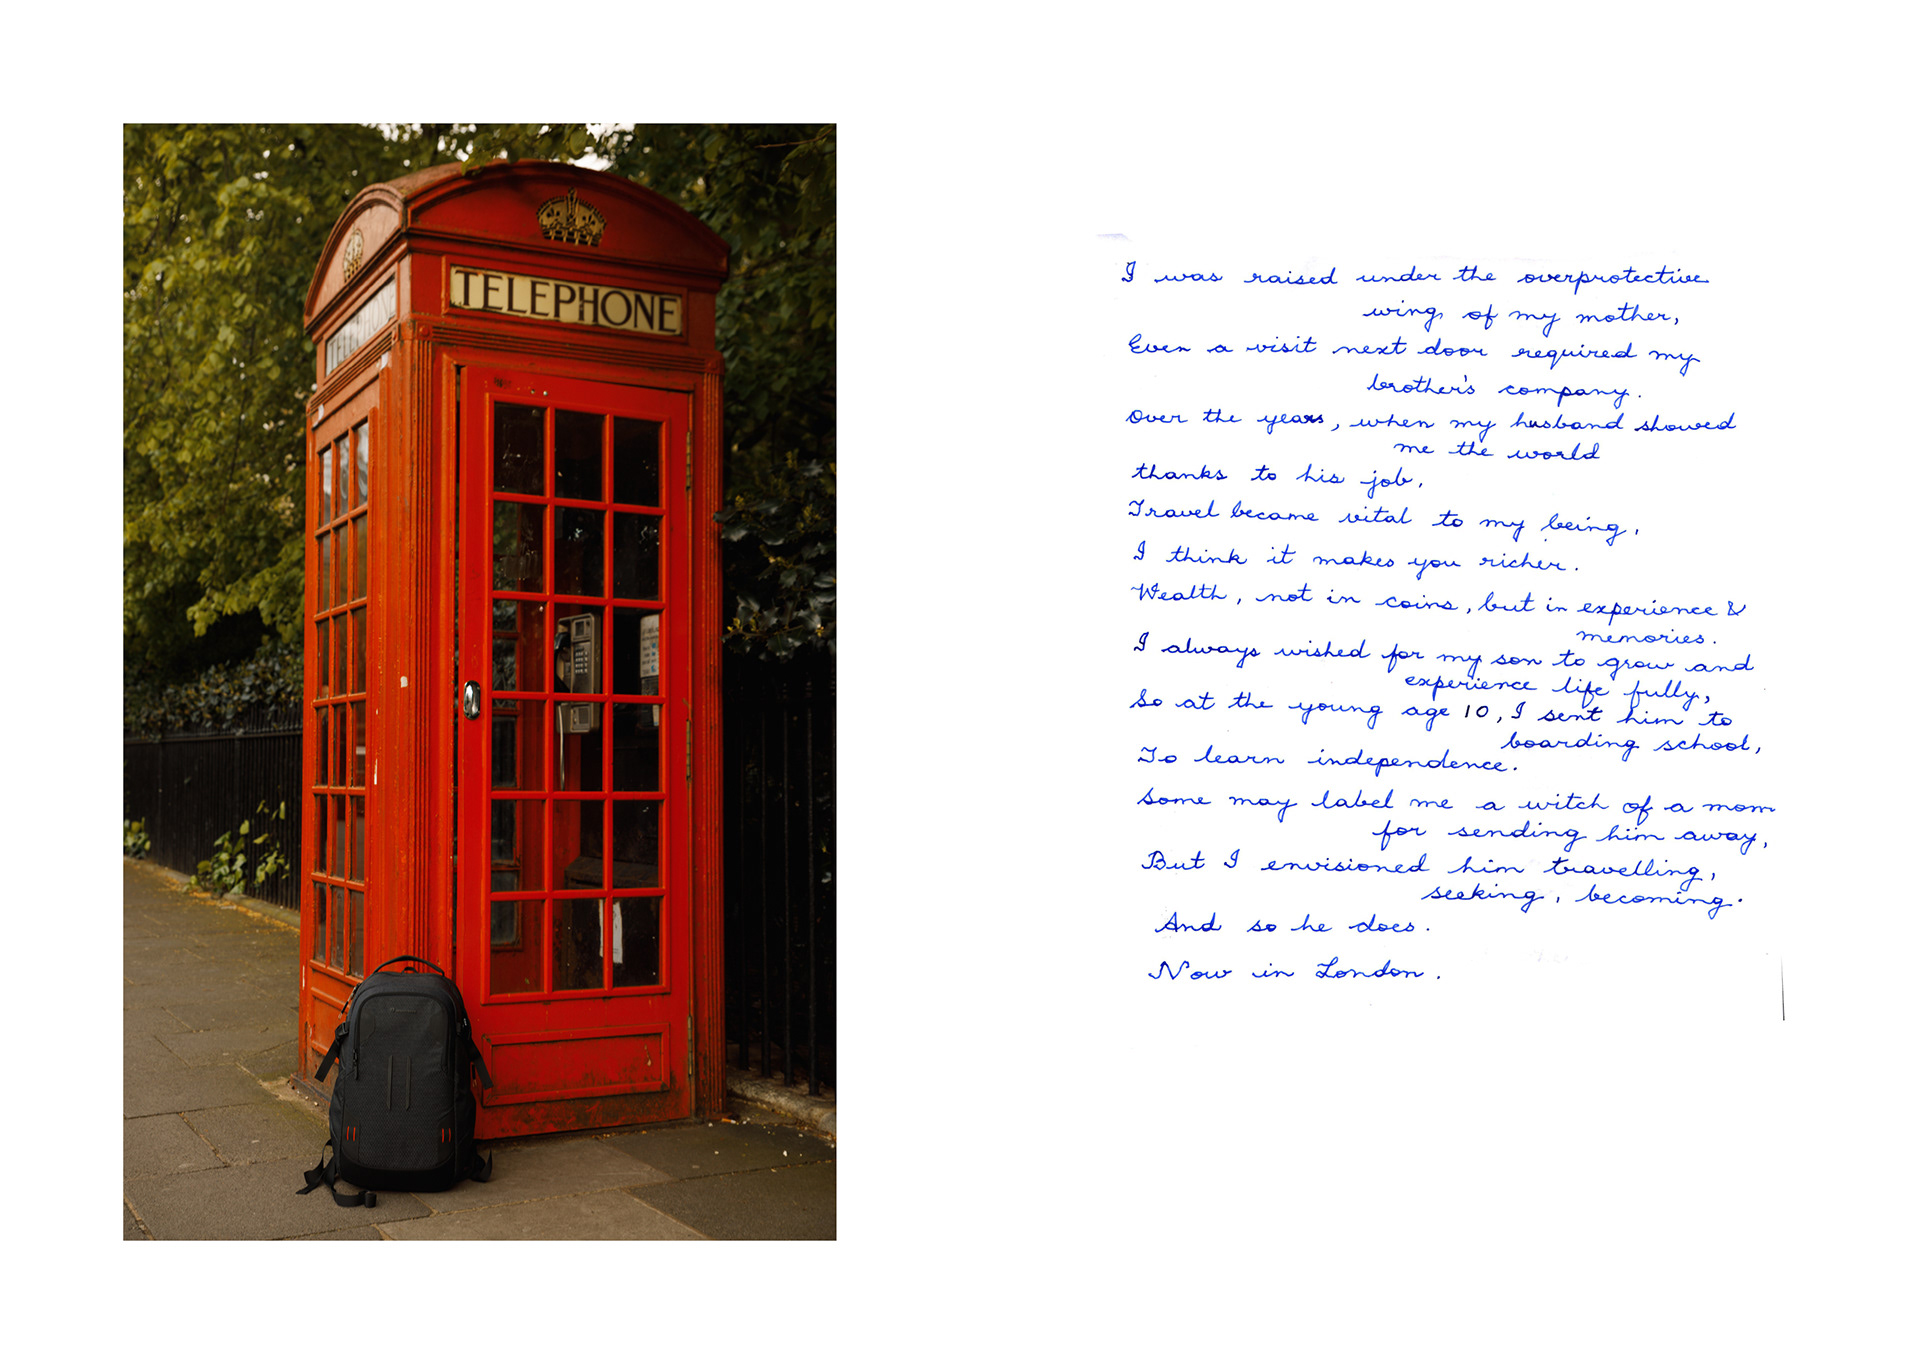 TELEPHONE
TELEPHONE
I was raised under the overprotective
wing of my mother,
Even a visit next door required my
brother's company.
Over the years, when my husband showed
me the world
thanks to his job,
Travel became vital to my being,
I think it makes you richer.
Wealth, not in coins, but in experience &
memories.
I always wished for my son to grow and
experience life fully,
So at the young age 10, I sent him to
boarding school,
To learn independence.
Some may label me a witch of a mom
for sending him away,
But I envisioned him travelling,
seeking, becoming.
And so he does.
Now in London.